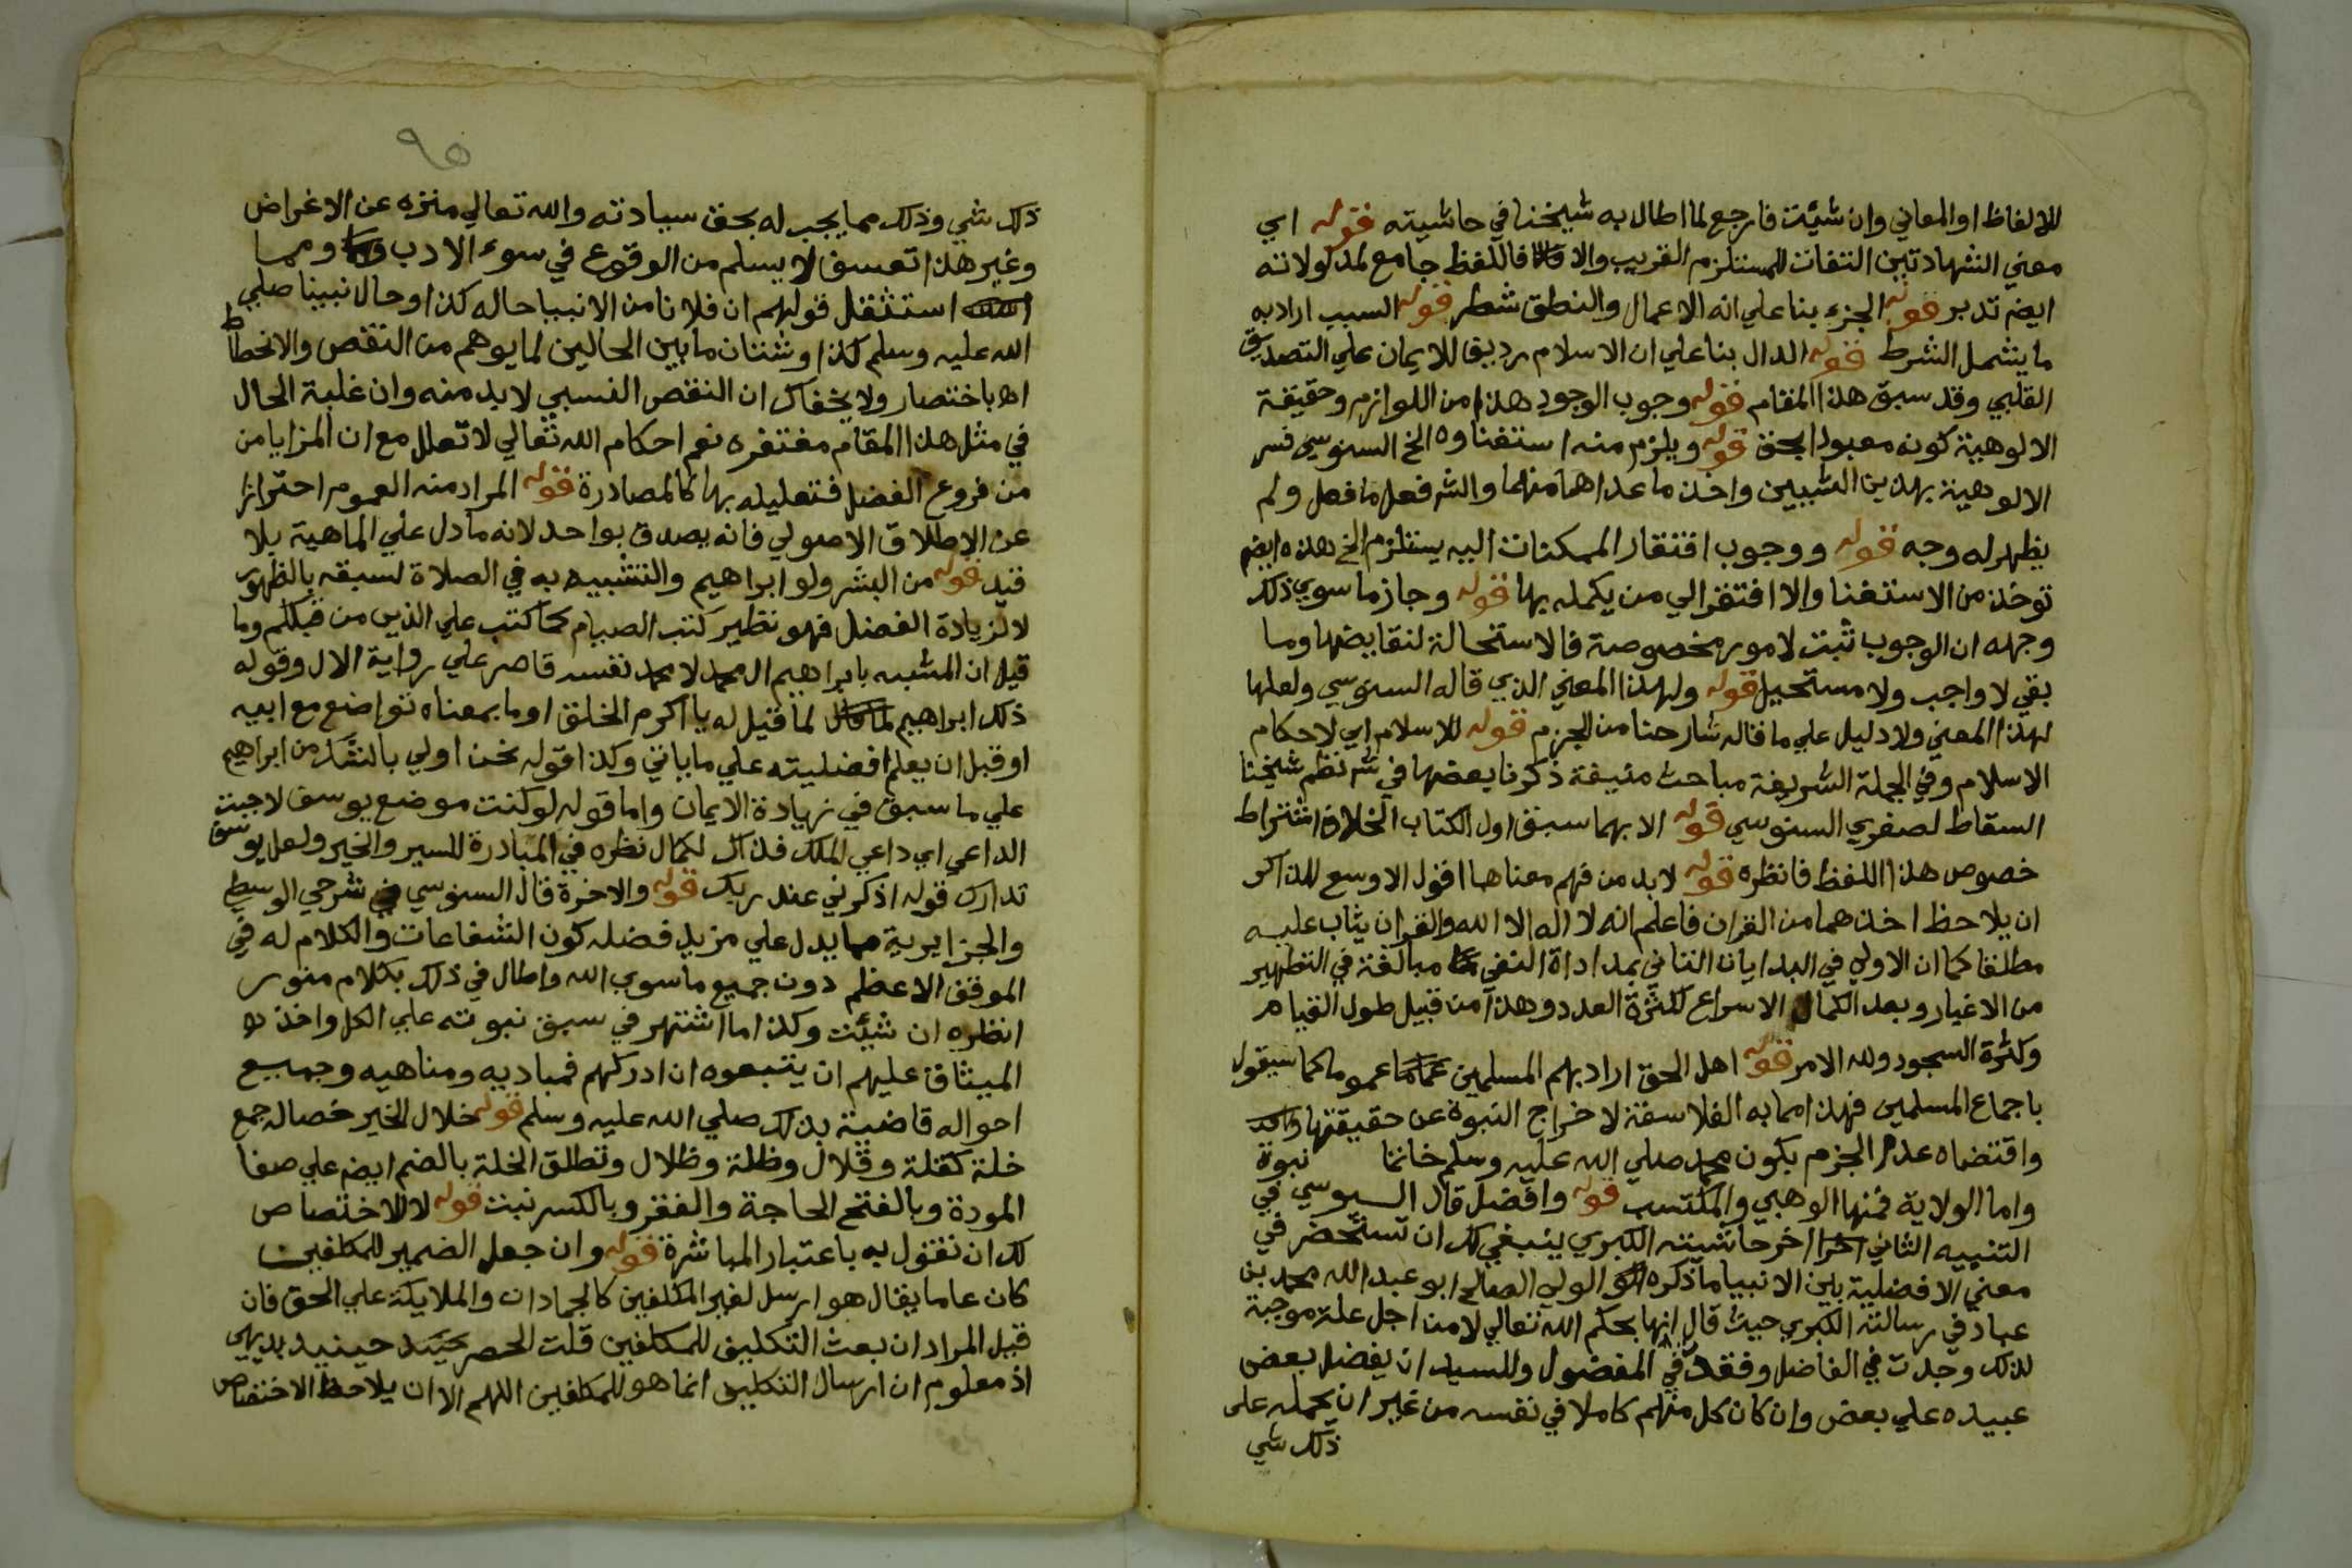 للالفاظ او المعاني وان شيئت فارجع لما اطال به شيخنا في حاشيته قوله اي
معني الشهادتين التفات للمستلزم القريب والا فاللفظ جامع لمدلولاته
ايضم تدبر قوله الجزء بنا علي انه الاعمال والنطق شطر قوله السبب اراد به
ما يشمل الشرط قوله الدال بنا علي ان الاسلام رديف للايمان علي التصديق
القلبي وقد سبق هذا المقام قوله وجوب الوجود هذا من اللوازم وحقيقة
الالوهية كونه معبودا بحق قوله ويلزم منه استغناوه الخ السنوسي فسر
الالوهية بهذين الشيين واخذ ما عداهما منهما والشر فعل ما فعل ولم
يظهر له وجه قوله ووجوب افتقار الممكنات اليه يستلزم الخ هذه ايضم
توخذ من الاستغنا والا افتقر الي من يكمله بها قوله وجاز ما سوي ذلك
وجهه ان الوجوب ثبت لامور مخصوصة فالاستحالة لنقايضها وما
بقي لا واجب ولا مستحيل قوله ولهذا المعني الذي قاله السنوسي ولعلها
لهذا المعني ولا دليل علي ما قاله شارحنا من الجزم قوله للاسلام اي لاحكام
الاسلام وفي الجملة الشريفة مباحث منيفة ذكرنا بعضها في شر نظم شيخنا
السقاط لصغري السنوسي قوله الا بهما سبق اول الكتاب الخلاف اشتراط
خصوص هذا اللفظ فانظره قوله لا بد من فهم معناها اقول الاوسع للذاكر
ان يلاحظ اخذهما من القران فاعلم انه لا اله الا الله والقران يثاب عليه
مطلقا كما ان الاولي في البدايات التاني بمد اداة النفي مبالغة في التطهير
من الاغيار وبعد الكمال الاسراع لكثرة العدد وهذا من قبيل طول القيام
وكثرة السجود ولله الامر قوله اهل الحق اراد بهم المسلمين عموما كما سيقول
باجماع المسلمين فهذا مما به الفلاسفة لاخراج النبوة عن حقيقتها
واقتضاه عدم الجزم بكون محمد صلي الله عليه وسلم خاتما نبوة
واما الولاية فمنها الوهبي والمكتسب قوله وافضل قال السنوسي في
التنبيه الثاني اخر حاشيته الكبري ينبغي لك ان تستحضر في
معني الافضلية بين الانبيا ما ذكره الولي الصالح ابو عبد الله محمد بن
عباد في رسالته الكبري حيث قال انها بحكم الله تعالي لا من اجل علة موجبة
لذلك وجدت في الفاضل وفقدت في المفضول وللسيد ان يفضل بعض
عبيده علي بعض وان كان كل منهم كاملا في نفسه من غير ان يحمله علي
ذلك شي
٩٥
ذلك شي وذلك مما يجب له بحق سيادته والله تعالي منزه عن الاغراض
وغير هذا تعسف لا يسلم من الوقوع في سوء الادب ومما
استثقل قولهم ان فلانا من الانبيا حاله كذا وحال نبينا صلي
الله عليه وسلم كذا وشتان ما بين الحالين لما يوهم من النقص والانحطاط
اه باختصار ولا يخفاك ان النقص النسبي لا بد منه وان غلبة الحال
في مثل هذا المقام مغتفره نعم احكام الله تعالي لا تعلل مع ان المزايا من
من فروع الفضل فتعليله بها كالمصادرة قوله المراد منه العموم احترازا
عن الاطلاق الاصولي فانه يصدق بواحد لانه ما دل علي الماهية بلا
قيد قوله من البشر ولو ابراهيم والتشبيه به في الصلاة لسبقه بالظهور
لا لزيادة الفضل فهو نظير كتب الصيام كما كتب علي الذين من قبلكم وما
قيل ان المشبه بابراهيم ال محمد لا محمد نفسه قاصر علي رواية الال وقوله
ذلك ابراهيم لما قيل له يا اكرم الخلق او ما بمعناه تواضع مع ابيه
او قبل ان يعلم افضليته علي ما ياتي وكذا قوله نحن اولي بالشك من ابراهيم
علي ما سبق في زيادة الايمان واما قوله لو كنت موضع يوسف لاجبت
الداعي اي داعي الملك فذاك لكمال نظره في المبادرة للسير والخير ولعل يوسف
تدارك قوله اذكرني عند ربك قوله والاخرة قال السنوسي في شرحي الوسطي
والجزايرية مما يدل علي مزيد فضله كون الشفاعات والكلام له في
الموقف الاعظم دون جميع ما سوي الله واطال في ذلك بكلام منور
انظره ان شيئت وكذا ما اشتهر في سبق نبوته علي الكل واخذ
الميثاق عليهم ان يتبعوه ان ادركهم فمباديه ومناهيه وجميع
احواله قاضية بذلك صلي الله عليه وسلم قوله خلال الخير خصاله جمع
خلة كقلة وقلال وظلة وظلال وتطلق الخلة بالضم ايضم علي صفا
المودة وبالفتح الحاجة والفقر وبالكسر نبت قوله لا للاختصاص
لك ان تقول به باعتبار المباشرة قوله وان جعل الضمير للمكلفين
كان عاما يقال هو ارسل لغير المكلفين كالجمادات والملايكة علي الحق فان
قيل المراد ان بعث التكليف للمكلفين قلت الحصر حينيد بديهي
اذ معلوم ان ارسال التكليف انما هو للمكلفين اللهم الا ان يلاحظ الاختصاص